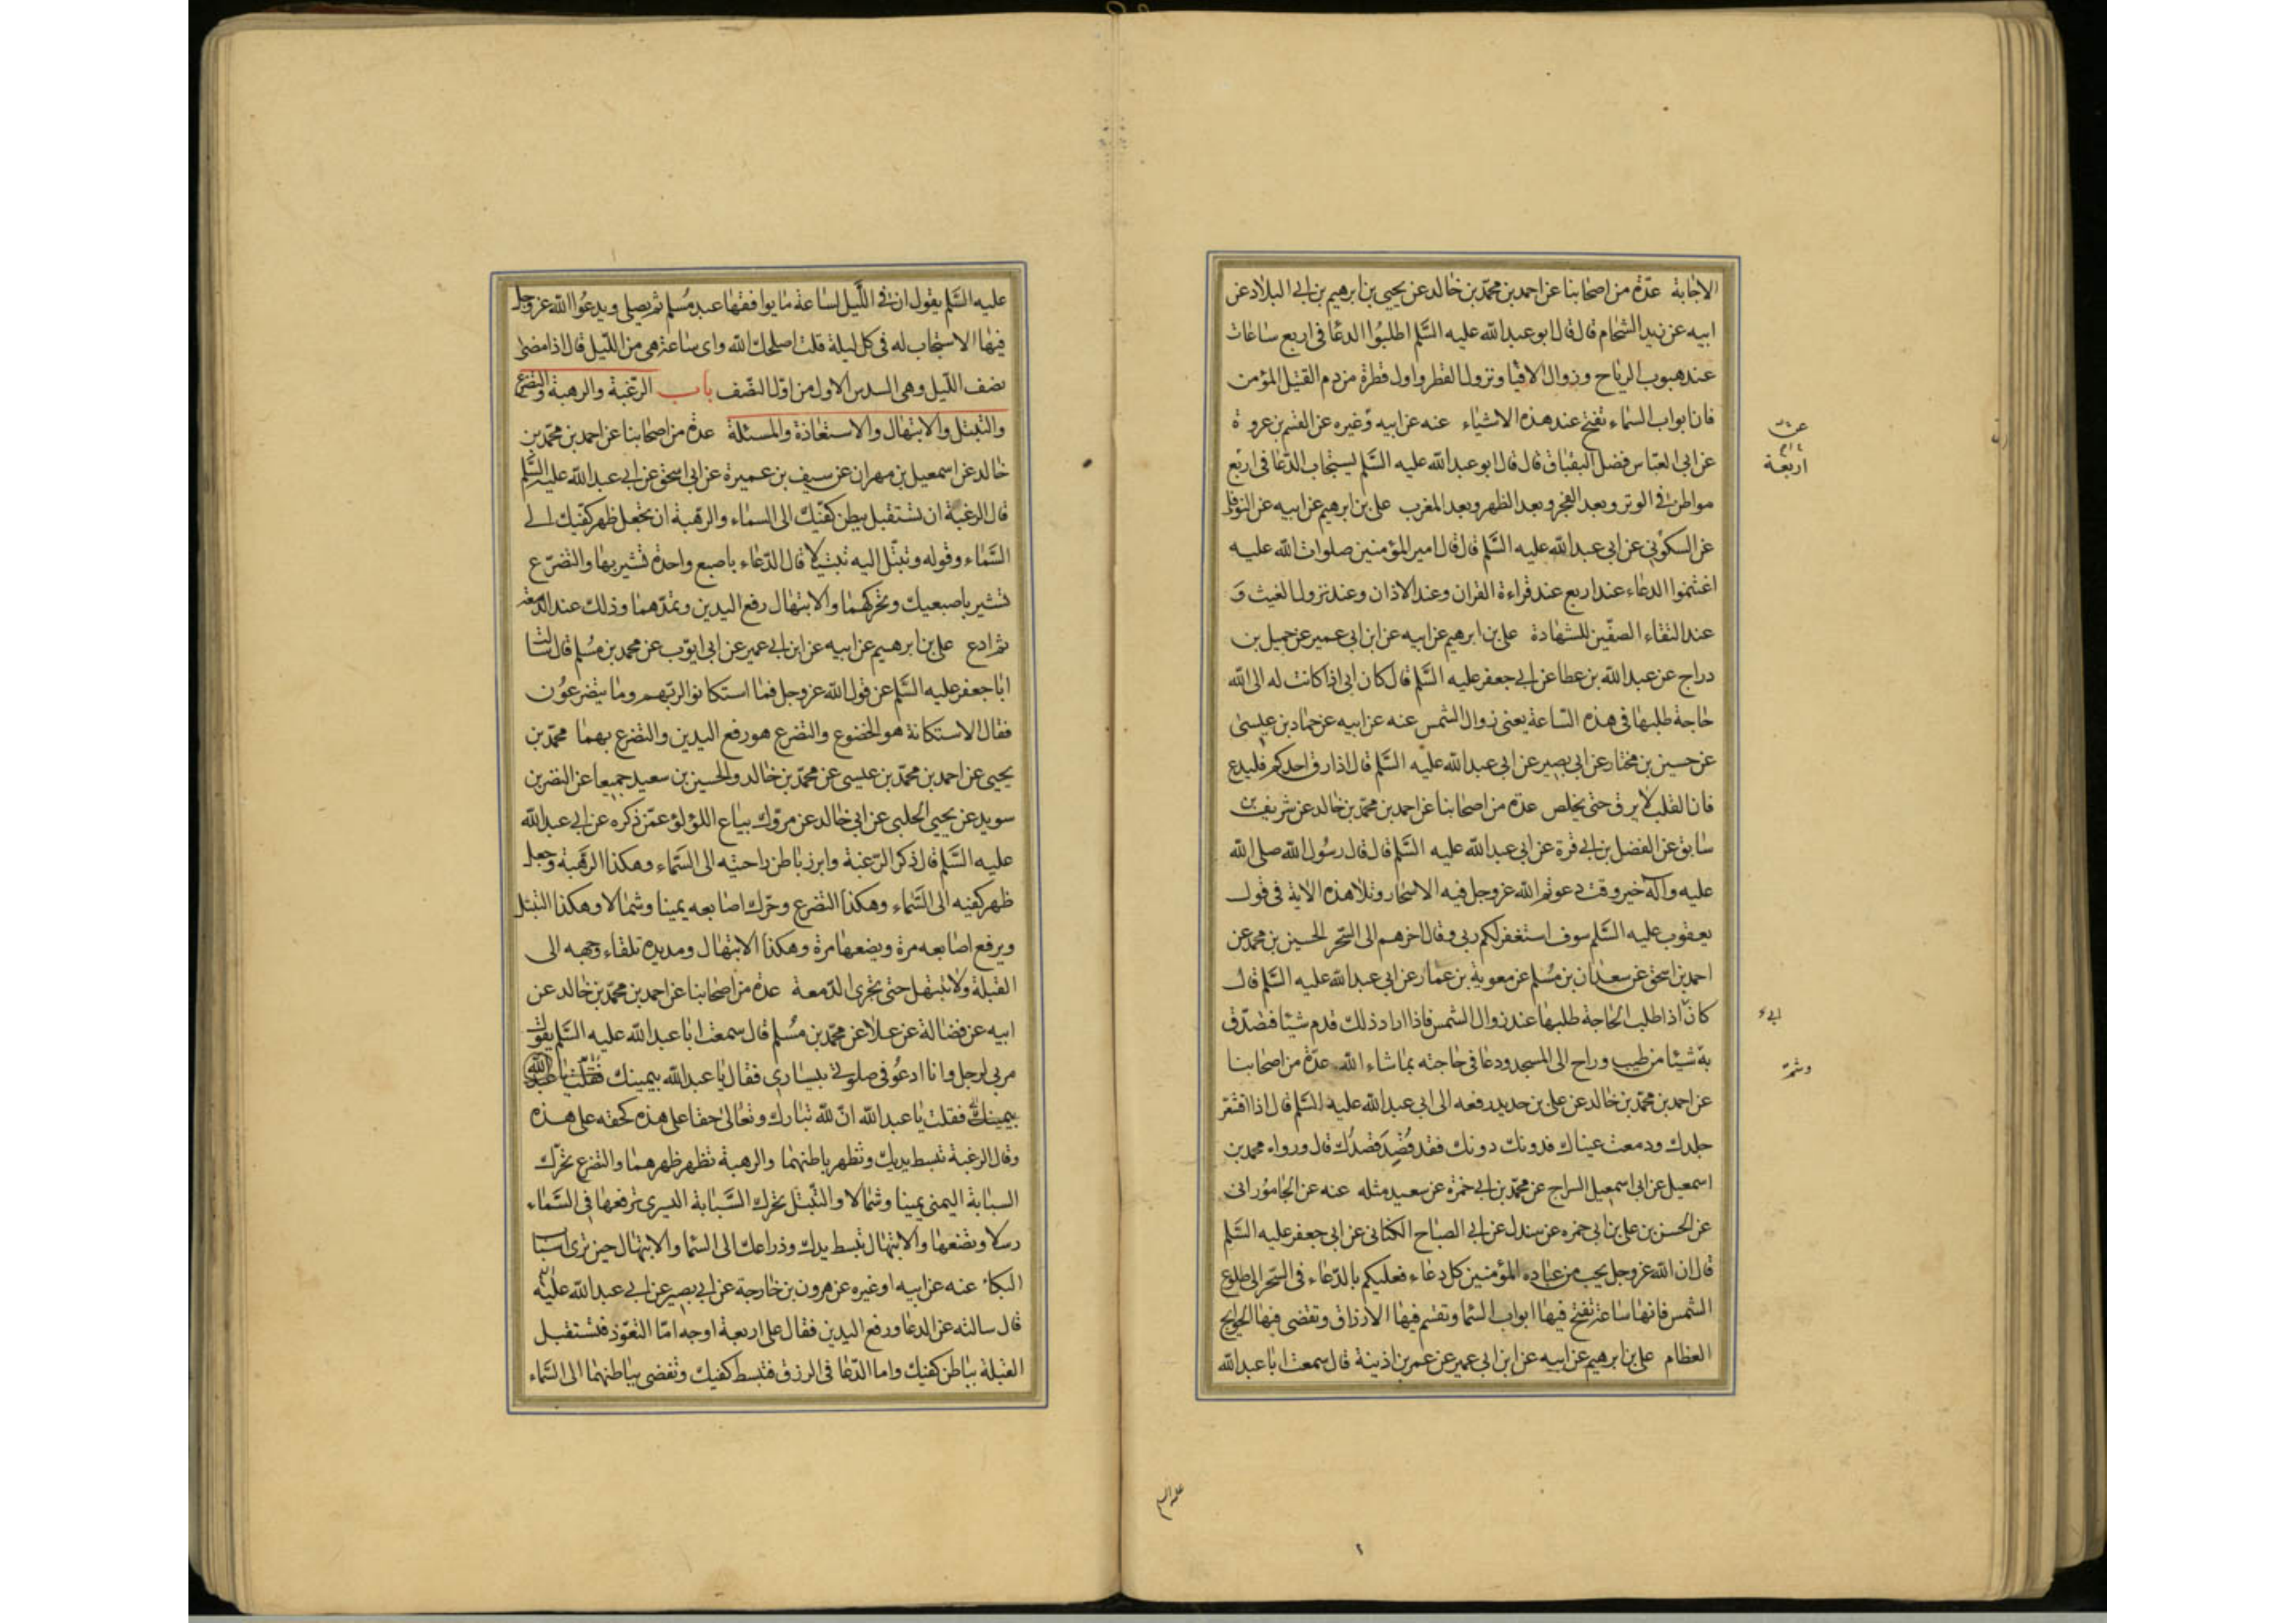 الاجابة عدة من اصحابنا عن احمد بن محمد بن خالد عن يحيى بن ابرهيم بن ابى البلاد عن
ابيه عن زيد الشحام قال قال ابو عبد الله عليه السلم اطلبوا الدعا فى اربع ساعات
عند هبوب الرياح وزوال الافيا ونزول القطر واول قطرة من دم القتيل المؤمن
فان ابواب السماء تفتح عند هذه الاشياء عنه عن ابيه وغيره عن القسم بن عروة
عن ابى العباس فضل البقباق قال قال ابو عبد الله عليه السلم يستجاب الدعا فى اربع
اربعة
مواطن فى الوتر وبعد الفجر وبعد الظهر وبعد المغرب على بن ابرهيم عن ابيه عن النوفلى
عن السكونى عن ابى عبد الله عليه السلم قال قال امير المؤمنين صلوات الله عليه
اغتنموا الدعاء عند اربع عند قراءة القران وعند الاذان وعند نزول الغيث و
عند التقاء الصفين للشهادة على بن ابرهيم عن ابيه عن ابن ابى عمير عن جميل بن
دراج عن عبد الله بن عطا عن ابى جعفر عليه السلم قال كان ابى اذا كانت له الى الله
حاجة طلبها فى هذه الساعة يعنى زوال الشمس عنه عن ابيه عن حماد بن عيسى
عن حسين بن مختار عن ابى بصير عن ابى عبد الله عليه السلم قال اذا رق احدكم فليدع
فان القلب لا يرق حتى يخلص عدة من اصحابنا عن احمد بن محمد بن خالد عن شريف بن
سابق عن الفضل بن ابى قرة عن ابى عبد الله عليه السلم قال قال رسول الله صلى الله
عليه وآله خير وقت دعوتم الله عز وجل فيه الاسحار وتلا هذه الاية فى قول
يعقوب عليه السلم سوف استغفر لكم ربى وقال اخرهم الى السحر الحسين بن محمد عن
احمد بن اسحق عن سعدان بن مسلم عن معوية بن عمار عن ابى عبد الله عليه السلم قال
كان اذا طلب الحاجة طلبها عند زوال الشمس فاذا اراد ذلك قدم شيئا فتصدق
ابى
به شيئا من طيب وراح الى المسجد ودعا فى حاجته بما شاء الله عدة من اصحابنا
وشم
عن احمد بن محمد بن خالد عن على بن حديد رفعه الى ابى عبد الله عليه السلم قال اذا اقشعر
جلدك ودمعت عيناك فدونك دونك فقد قُصِدَ قصدُك قال ورواه محمد بن
اسمعيل عن ابى اسمعيل السراج عن محمد بن ابى حمزة عن سعيد مثله عنه عن الجامورانى
عن الحسن بن على بن ابى حمزه عن صندل عن ابى الصباح الكنانى عن ابى جعفر عليه السلم
قال ان الله عز وجل يحب من عباده المؤمنين كل دعاء فعليكم بالدعاء فى السحر الى طلوع
الشمس فانها ساعة تفتح فيها ابواب السما وتقسم فيها الارزاق وتقضى فيها الحوايج
العظام على بن ابرهيم عن ابيه عن ابن ابى عمير عن عمر بن اذينة قال سمعت ابا عبد الله
عليه السلم
عليه السلم يقول ان فى الليل لساعة ما يوافقها عبد مسلم ثم يصلى ويدعوا الله عز وجل
فيها الا استجاب له فى كل ليلة قلت اصلحك الله واى ساعة هى من الليل قال اذا مضى
نصف الليل وهى السدس الاول من اول النصف باب الرغبة والرهبة والتضرع
والتبتل والابتهال والاستعاذة والمسئلة عدة من اصحابنا عن احمد بن محمد بن
خالد عن اسمعيل بن مهران عن سيف بن عميرة عن ابى اسحق عن ابى عبد الله عليه السلم
قال الرغبة ان تستقبل ببطن كفيك الى السماء والرهبة ان تجعل ظهر كفيك الى
السماء وقوله وتبتل اليه تبتيلا قال الدعاء باصبع واحدة تشير بها والتضرع
تشير باصبعيك وتحركهما والابتهال رفع اليدين وتمدهما وذلك عند الدمعة
ثم ادع على بن ابرهيم عن ابيه عن ابن ابى عمير عن ابى ايوب عن محمد بن مسلم قال سالت
ابا جعفر عليه السلم عن قول الله عز وجل فما استكانوا لربهم وما يتضرعون
فقال الاستكانة هو الخضوع والتضرع هو رفع اليدين والتضرع بهما محمد بن
يحيى عن احمد بن محمد بن عيسى عن محمد بن خالد والحسين بن سعيد جميعا عن النضر بن
سويد عن يحيى الحلبى عن ابى خالد عن مروك بياع اللؤلؤ عمن ذكره عن ابى عبد الله
عليه السلم قال ذكر الرغبة وابرز باطن راحتيه الى السماء وهكذا الرهبة وجعل
ظهر كفيه الى السماء وهكذا التضرع وحرك اصابعه يمينا وشمالا وهكذا التبتل
ويرفع اصابعه مرة ويضعها مرة وهكذا الابتهال ومد يده تلقاء وجهه الى
القبلة ولا تبتهل حتى تجرى الدمعة عدة من اصحابنا عن احمد بن محمد بن خالد عن
ابيه عن فضالة عن علا عن محمد بن مسلم قال سمعت ابا عبد الله عليه السلم يقول
مر بى رجل وانا ادعو فى صلوتى بيسارى فقال يا عبد الله بيمينك فقلت يا عبد الله
بيمينك فقلت يا عبد الله ان لله تبارك وتعالى حقا على هذه كحقه على هذه
وقال الرغبة تبسط يديك وتظهر باطنهما والرهبة تظهر ظهرهما والتضرع تحرك
السبابة اليمنى يمينا وشمالا والتبتل تحرك السبابة اليسرى ترفعها فى السماء
رسلا وتضعها والابتهال تبسط يدك وذراعك الى السما والابتهال حين ترى اسباب
البكا عنه عن ابيه او غيره عن هرون بن خارجة عن ابى بصير عن ابى عبد الله عليه
قال سالته عن الدعا ورفع اليدين فقال على اربعة اوجه اما التعوذ فتستقبل
القبلة بباطن كفيك واما الدعا فى الرزق فتبسط كفيك وتفضى بباطنهما الى السماء